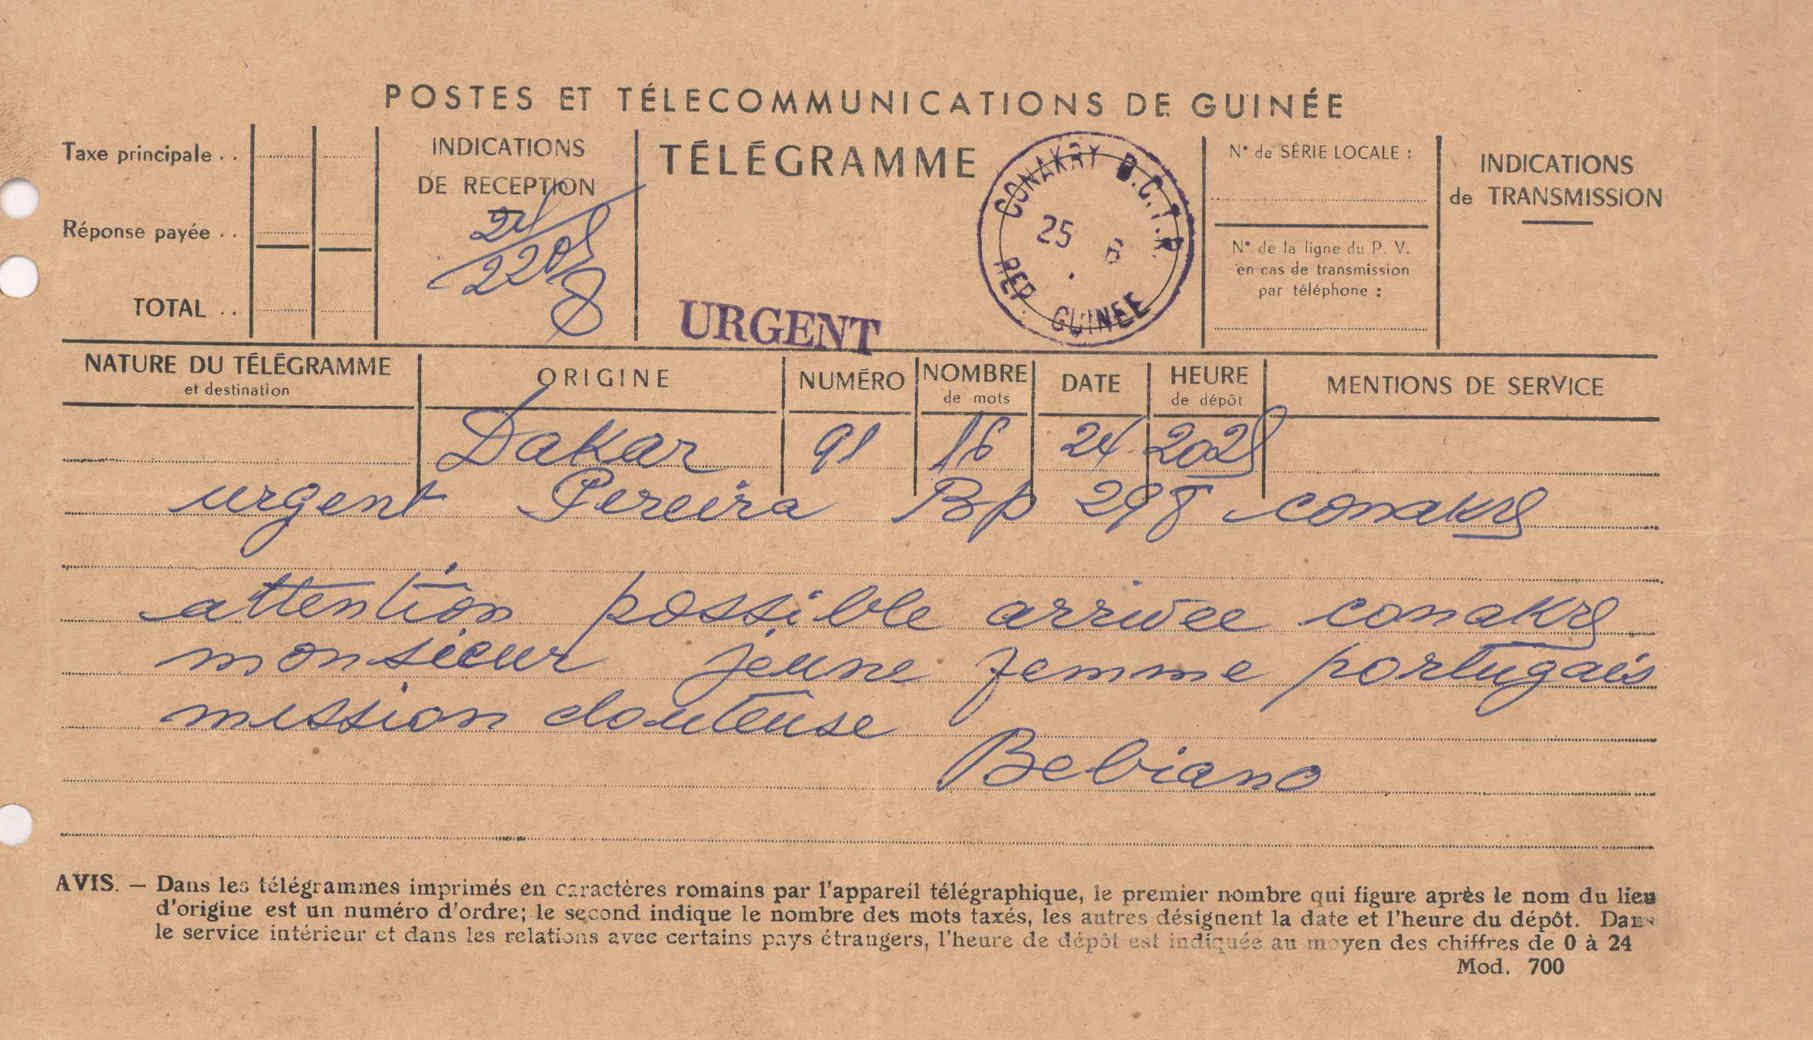 POSTES ET TÉLECOMMUNICATIONS DE GUINÉE
Taxe principale . .
Réponse payée . .
TOTAL . .
INDICATIONS
DE RECEPTION
24
2205
TÉLÉGRAMME
URGENT
CONAKRY B.C.T.R.
25 6
REP. GUINEE
N° de SÉRIE LOCALE :
N° de la ligne du P. V.
en cas de transmission
par téléphone :
INDICATIONS
de TRANSMISSION
NATURE DU TÉLÉGRAMME
et destination
ORIGINE
NUMÉRO
NOMBRE
de mots
DATE
HEURE
de dépôt
MENTIONS DE SERVICE
Dakar 91 16 24 2025
urgent Pereira Bp 298 conakry
attention possible arrivee conakry
monsieur jeune femme portugais
mission douteuse
Bebiano
AVIS. — Dans les télégrammes imprimés en caractères romains par l'appareil télégraphique, le premier nombre qui figure après le nom du lieu
d'origine est un numéro d'ordre; le second indique le nombre des mots taxés, les autres désignent la date et l'heure du dépôt. Dans
le service intérieur et dans les relations avec certains pays étrangers, l'heure de dépôt est indiquée au moyen des chiffres de 0 à 24
Mod. 700